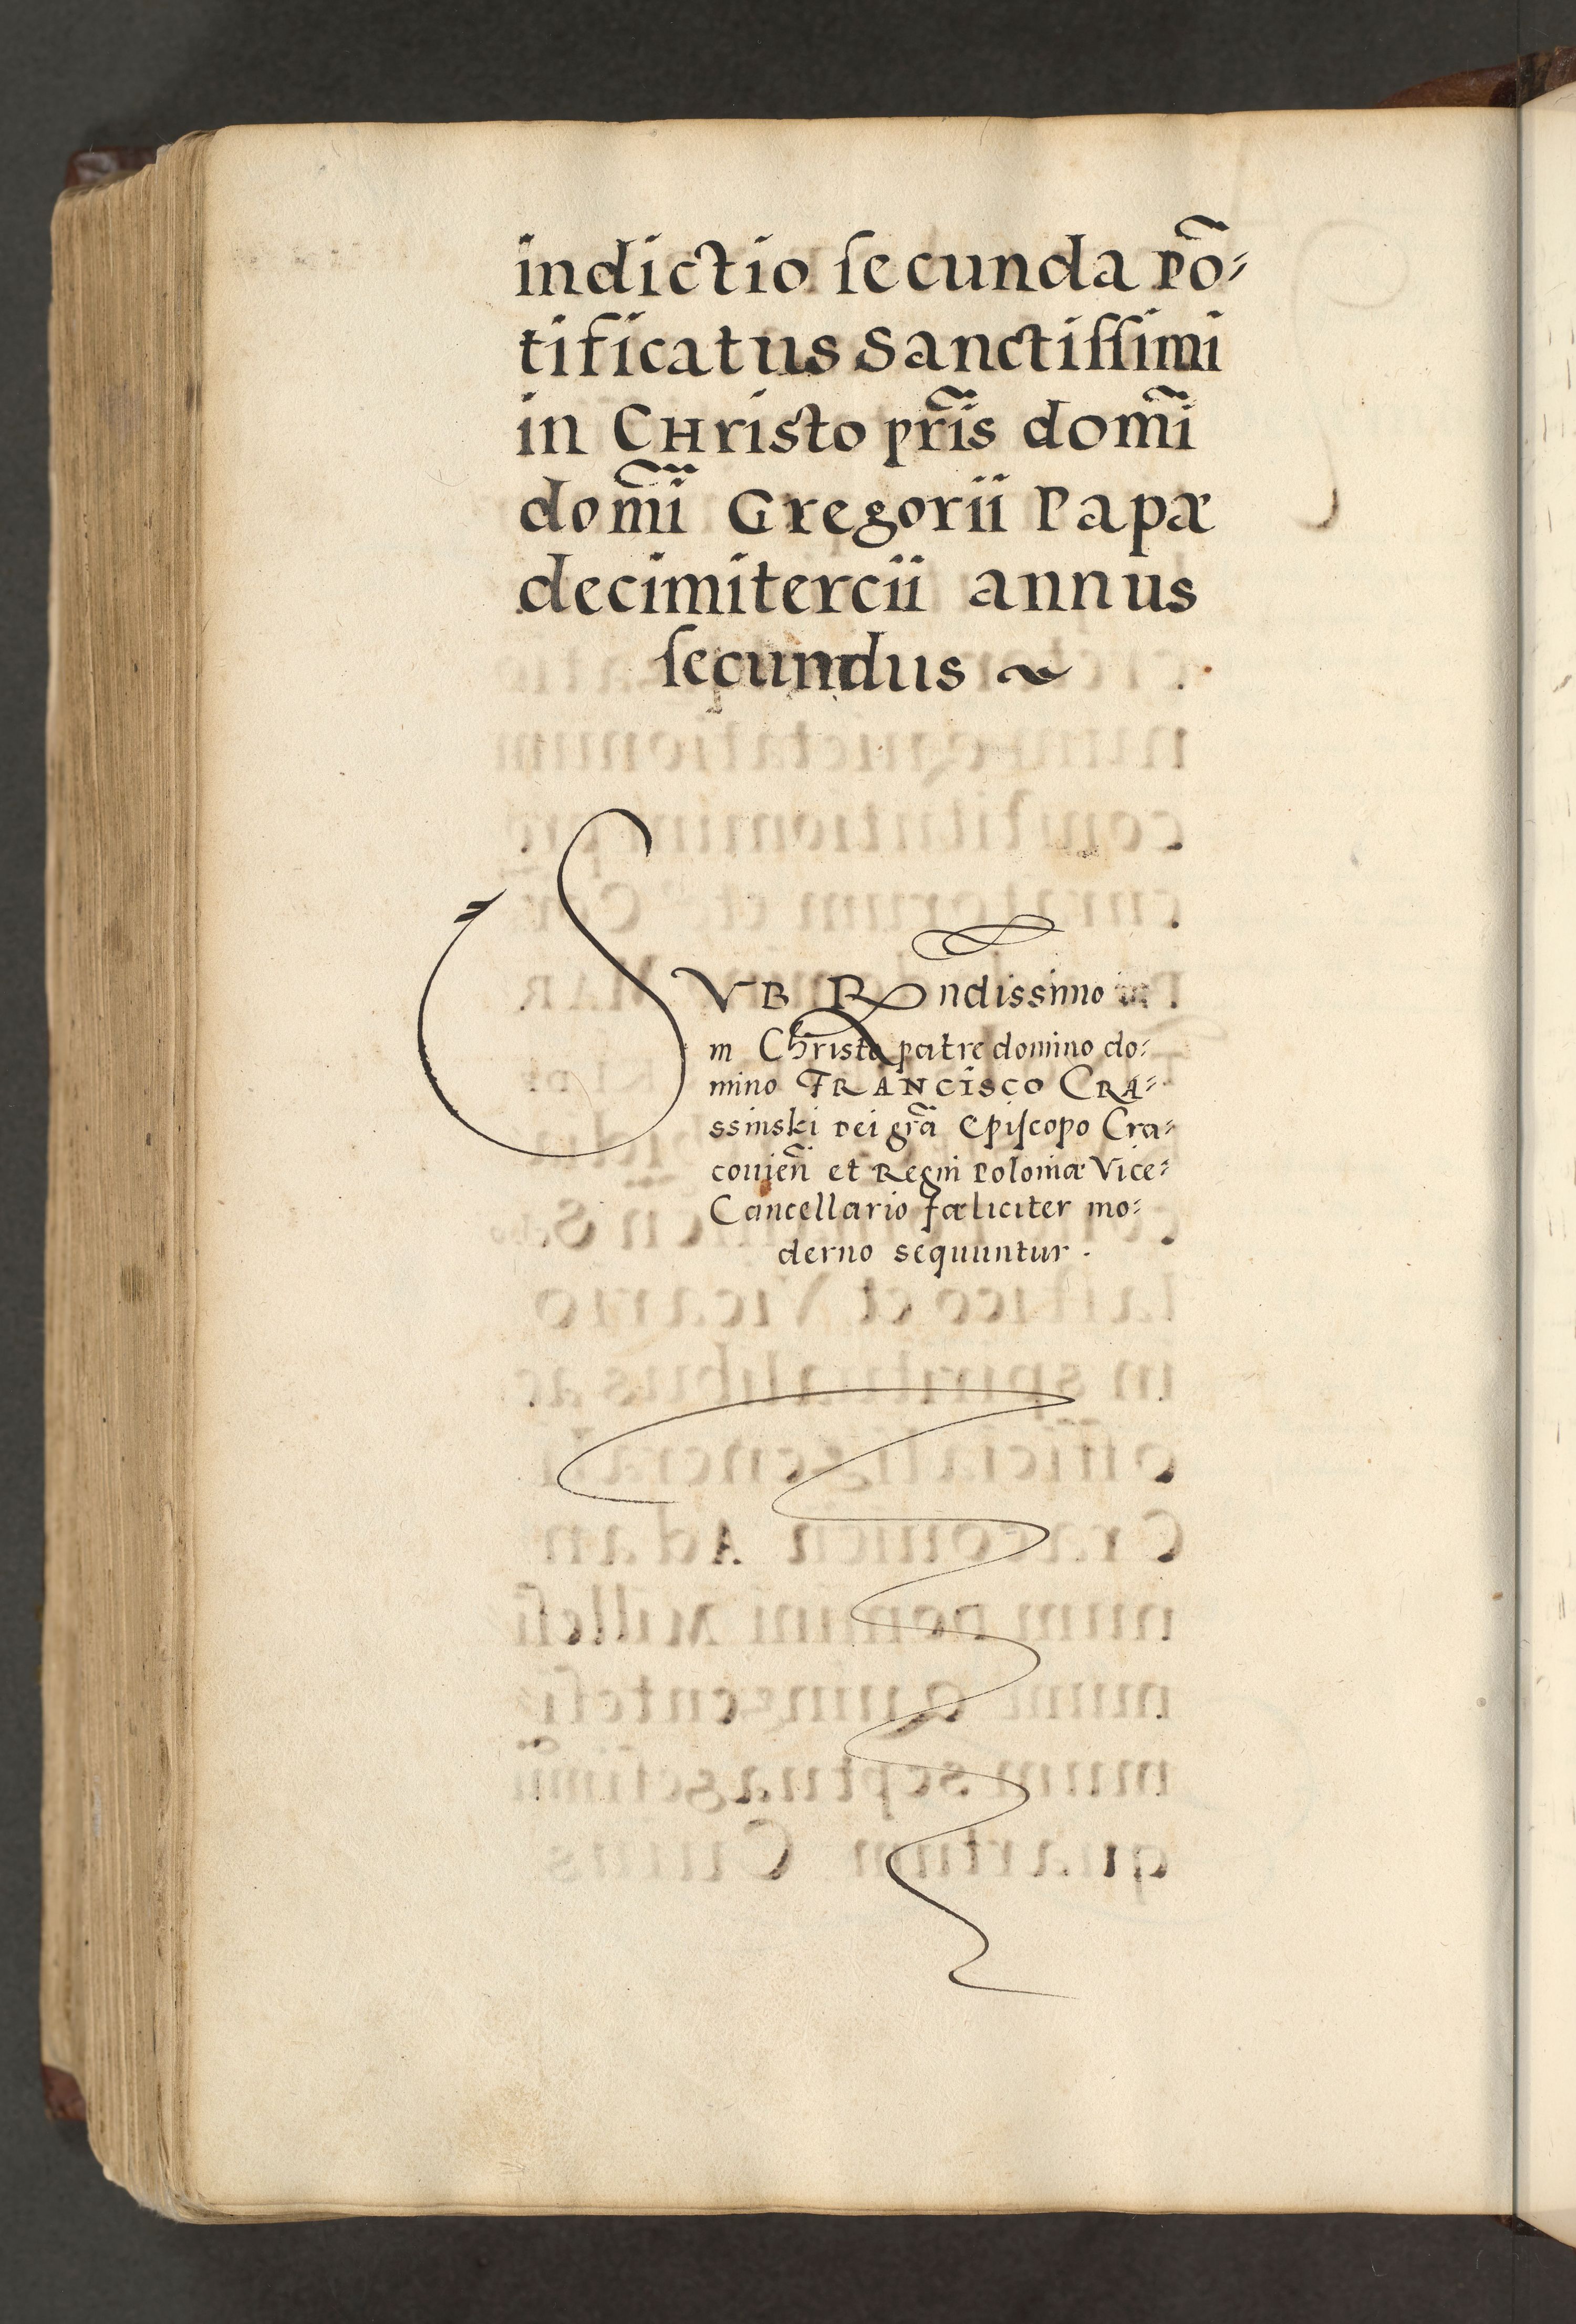 indictio ſecunda Põ⸗
tificatus Sanctiſſimi
in CHristo pr̃is dom̃i
dom̃i Gregorii Papæ
decimitercii annus
ſecundus ~
SVB Rndissimo
in Christo patre domino do⸗
mino FRANCISCO CRA⸗
ssinski Dei gr̃a Epiſcopo Cra⸗
covień et Regni Poloniæ Vice⸗
Cancellario fæliciter mo⸗
derno sequuntur .